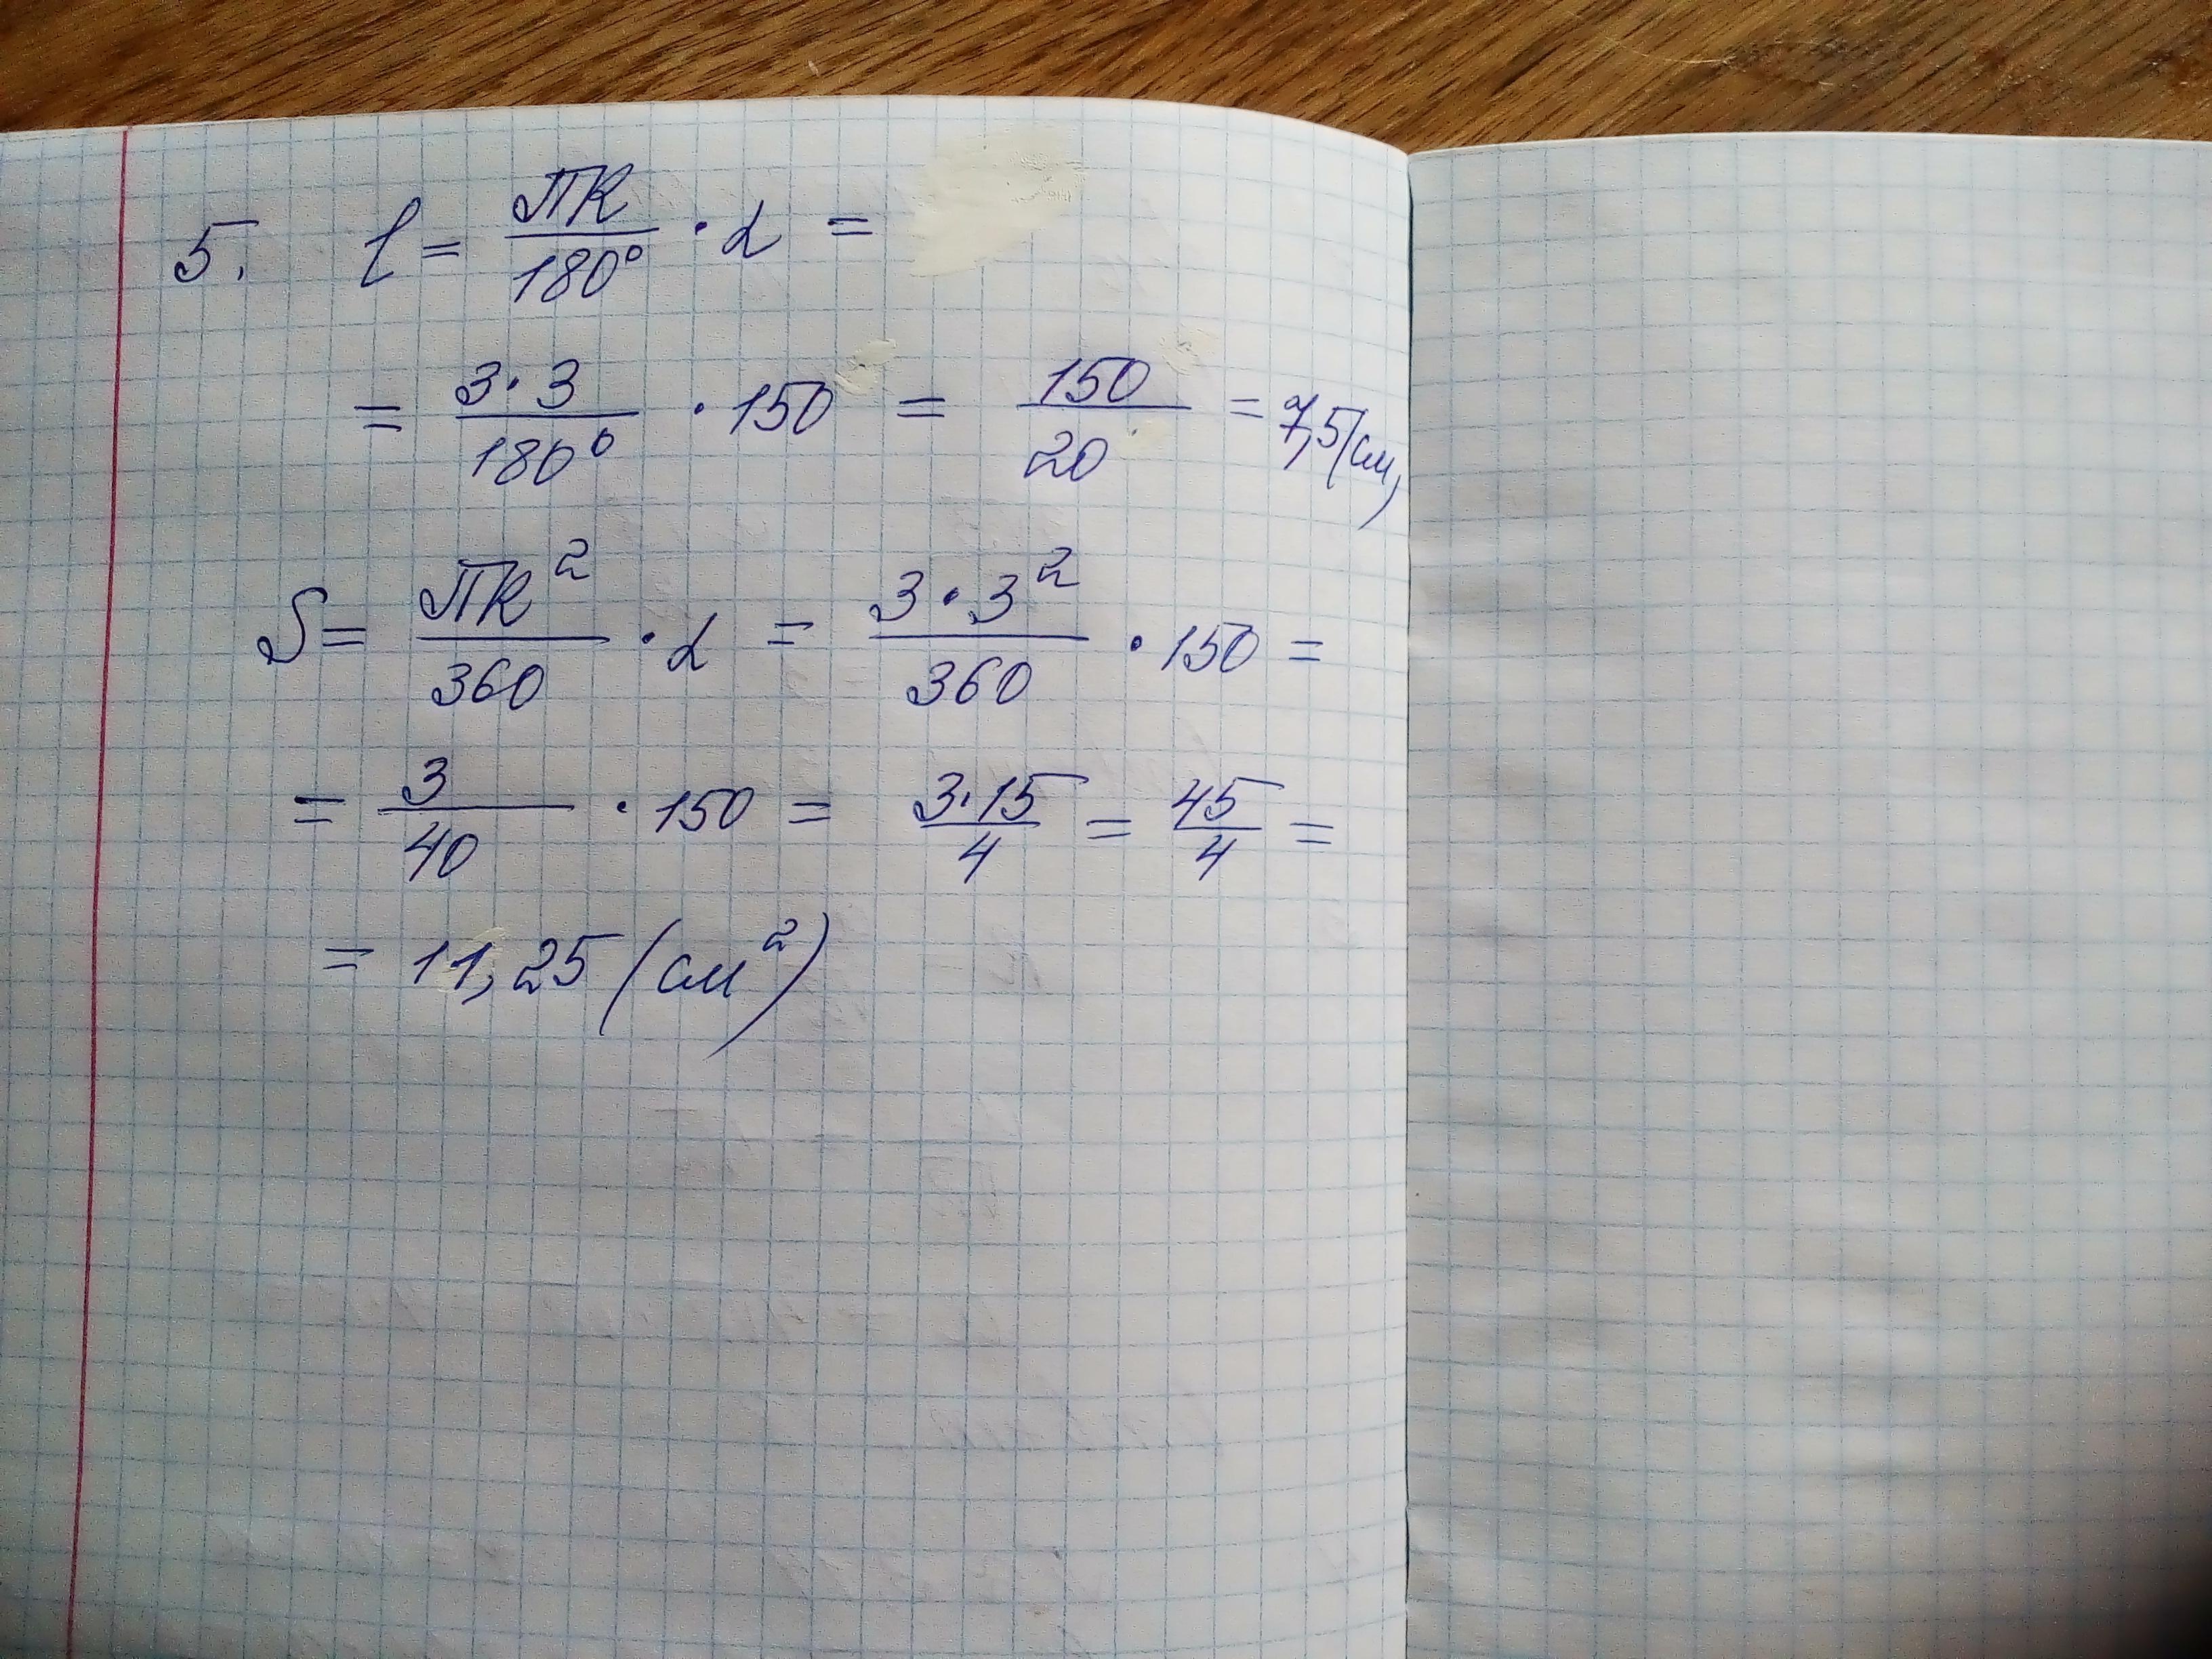 5. l = πR/180° · α =
= 3·3/180° · 150 = 150/20 = 7,5(см)
S = πR²/360 · α = 3·3²/360 · 150 =
= 3/40 · 150 = 3·15/4 = 45/4 =
= 11,25 (см²)